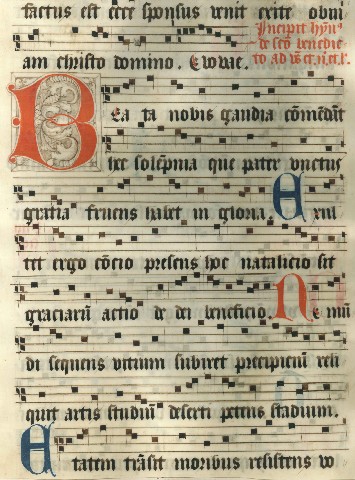 factus est ecce sponsus venit exite obvi
Incipit hymnus
de sco benedic
am christo domino. Evovae.
Bea ta nobis gaudia comedat
hec solepnia que pater vnctus
gratia fruens habet in gloria. Exul
tet ergo cocio presens hoc natalicio sit
graciaru actio de dei beneficio. Ne mu
di sequens vitium subiret precipiciu reli
quit artis studiu deserti petens stadium.
Etatem trasit moribus resistens vo